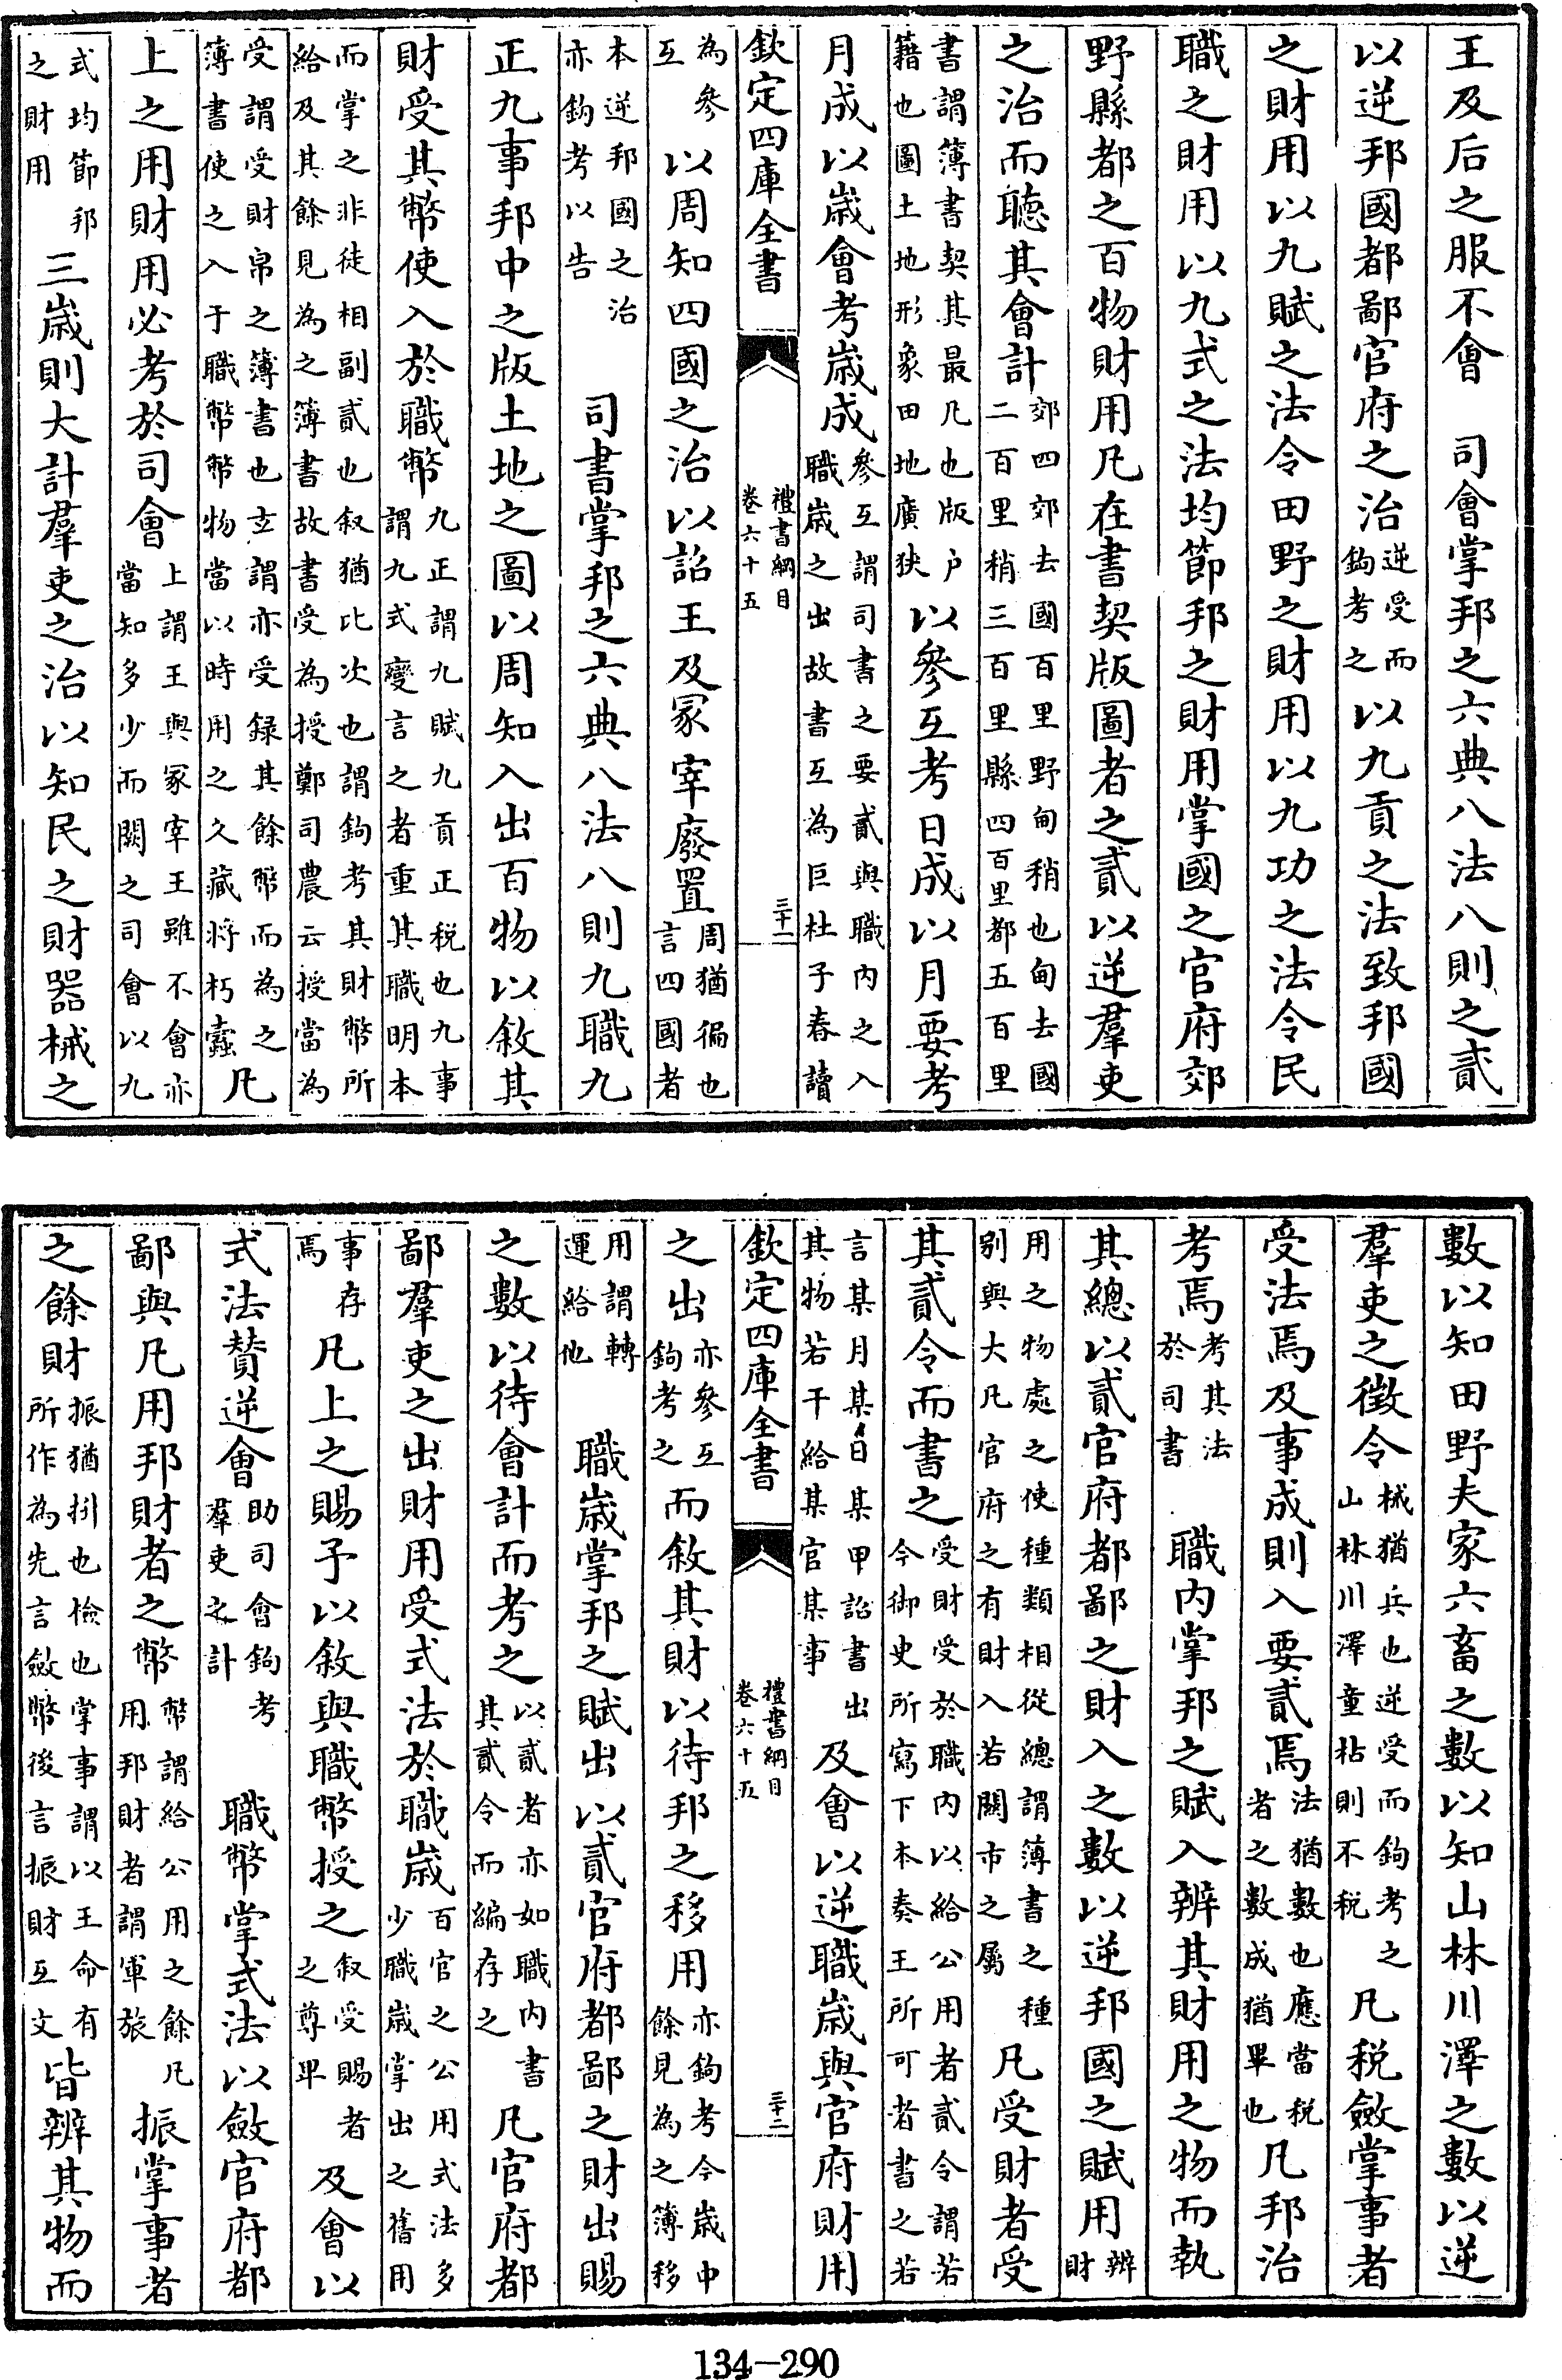 王及后之服不會　司會掌邦之六典八法八則之貳
以逆邦國都鄙官府之治逆受而鈎考之以九貢之法致邦國
之財用以九賦之法令田野之財用以九功之法令民
職之財用以九式之法均節邦之財用掌國之官府郊
野縣都之百物財用凡在書契版圖者之貳以逆羣吏
之治而聽其會計郊四郊去國百里野甸稍也甸去國二百里稍三百里縣四百里都五百里
書謂簿書契其最凡也版户籍也圖土地形象田地廣狹以參互考日成以月要考
月成以歲會考歲成參互謂司書之要貳與職内之入職歲之出故書互為巨杜子春讀
欽定四庫全書
禮書綱目
卷六十五
三十一
為參互以周知四國之治以詔王及冢宰廢置周猶徧也言四國者
本逆邦國之治亦鈎考以告　司書掌邦之六典八法八則九職九
正九事邦中之版土地之圖以周知入出百物以敘其
財受其幣使入於職幣九正謂九賦九貢正税也九事謂九式變言之者重其職明本
而掌之非徒相副貳也叙猶比次也謂鈎考其財幣所給及其餘見為之簿書故書受為授鄭司農云授當為
受謂受財帛之簿書也玄謂亦受録其餘幣而為之簿書使之入于職幣幣物當以時用之久藏將朽蠧凡
上之用財用必考於司會上謂王與冢宰王雖不會亦當知多少而闕之司會以九
式均節邦之財用三歲則大計羣吏之治以知民之財器械之
數以知田野夫家六畜之數以知山林川澤之數以逆
羣吏之徵令械猶兵也逆受而鈎考之山林川澤童枯則不税凡税斂掌事者
受法焉及事成則入要貳焉法猶數也應當税者之數成猶畢也凡邦治
考焉考其法於司書　職内掌邦之賦入辨其財用之物而執
其總以貳官府都鄙之財入之數以逆邦國之賦用辨財
用之物處之使種類相從總謂簿書之種別與大凡官府之有財入若關市之屬凡受財者受
其貳令而書之受財受於職内以給公用者貳令謂若今御史所寫下本奏王所可者書之若
言某月某日某甲詔書出其物若干給某官某事及會以逆職歲與官府財用
欽定四庫全書
禮書綱目
卷六十五
三十二
之出亦參互鈎考之而敘其財以待邦之移用亦鈎考今歲中餘見為之簿移
用謂轉運給他　職歲掌邦之賦出以貳官府都鄙之財出賜
之數以待會計而考之以貳者亦如職内書其貳令而編存之凡官府都
鄙羣吏之出財用受式法於職歲百官之公用式法多少職歲掌出之舊用
事存焉凡上之賜予以敘與職幣授之叙受賜者之尊卑及會以
式法贊逆會助司會鈎考羣吏之計　職幣掌式法以斂官府都
鄙與凡用邦財者之幣幣謂給公用之餘凡用邦財者謂軍旅振掌事者
之餘財振猶抍也檢也掌事謂以王命有所作為先言斂幣後言振財互文皆辨其物而
134-290